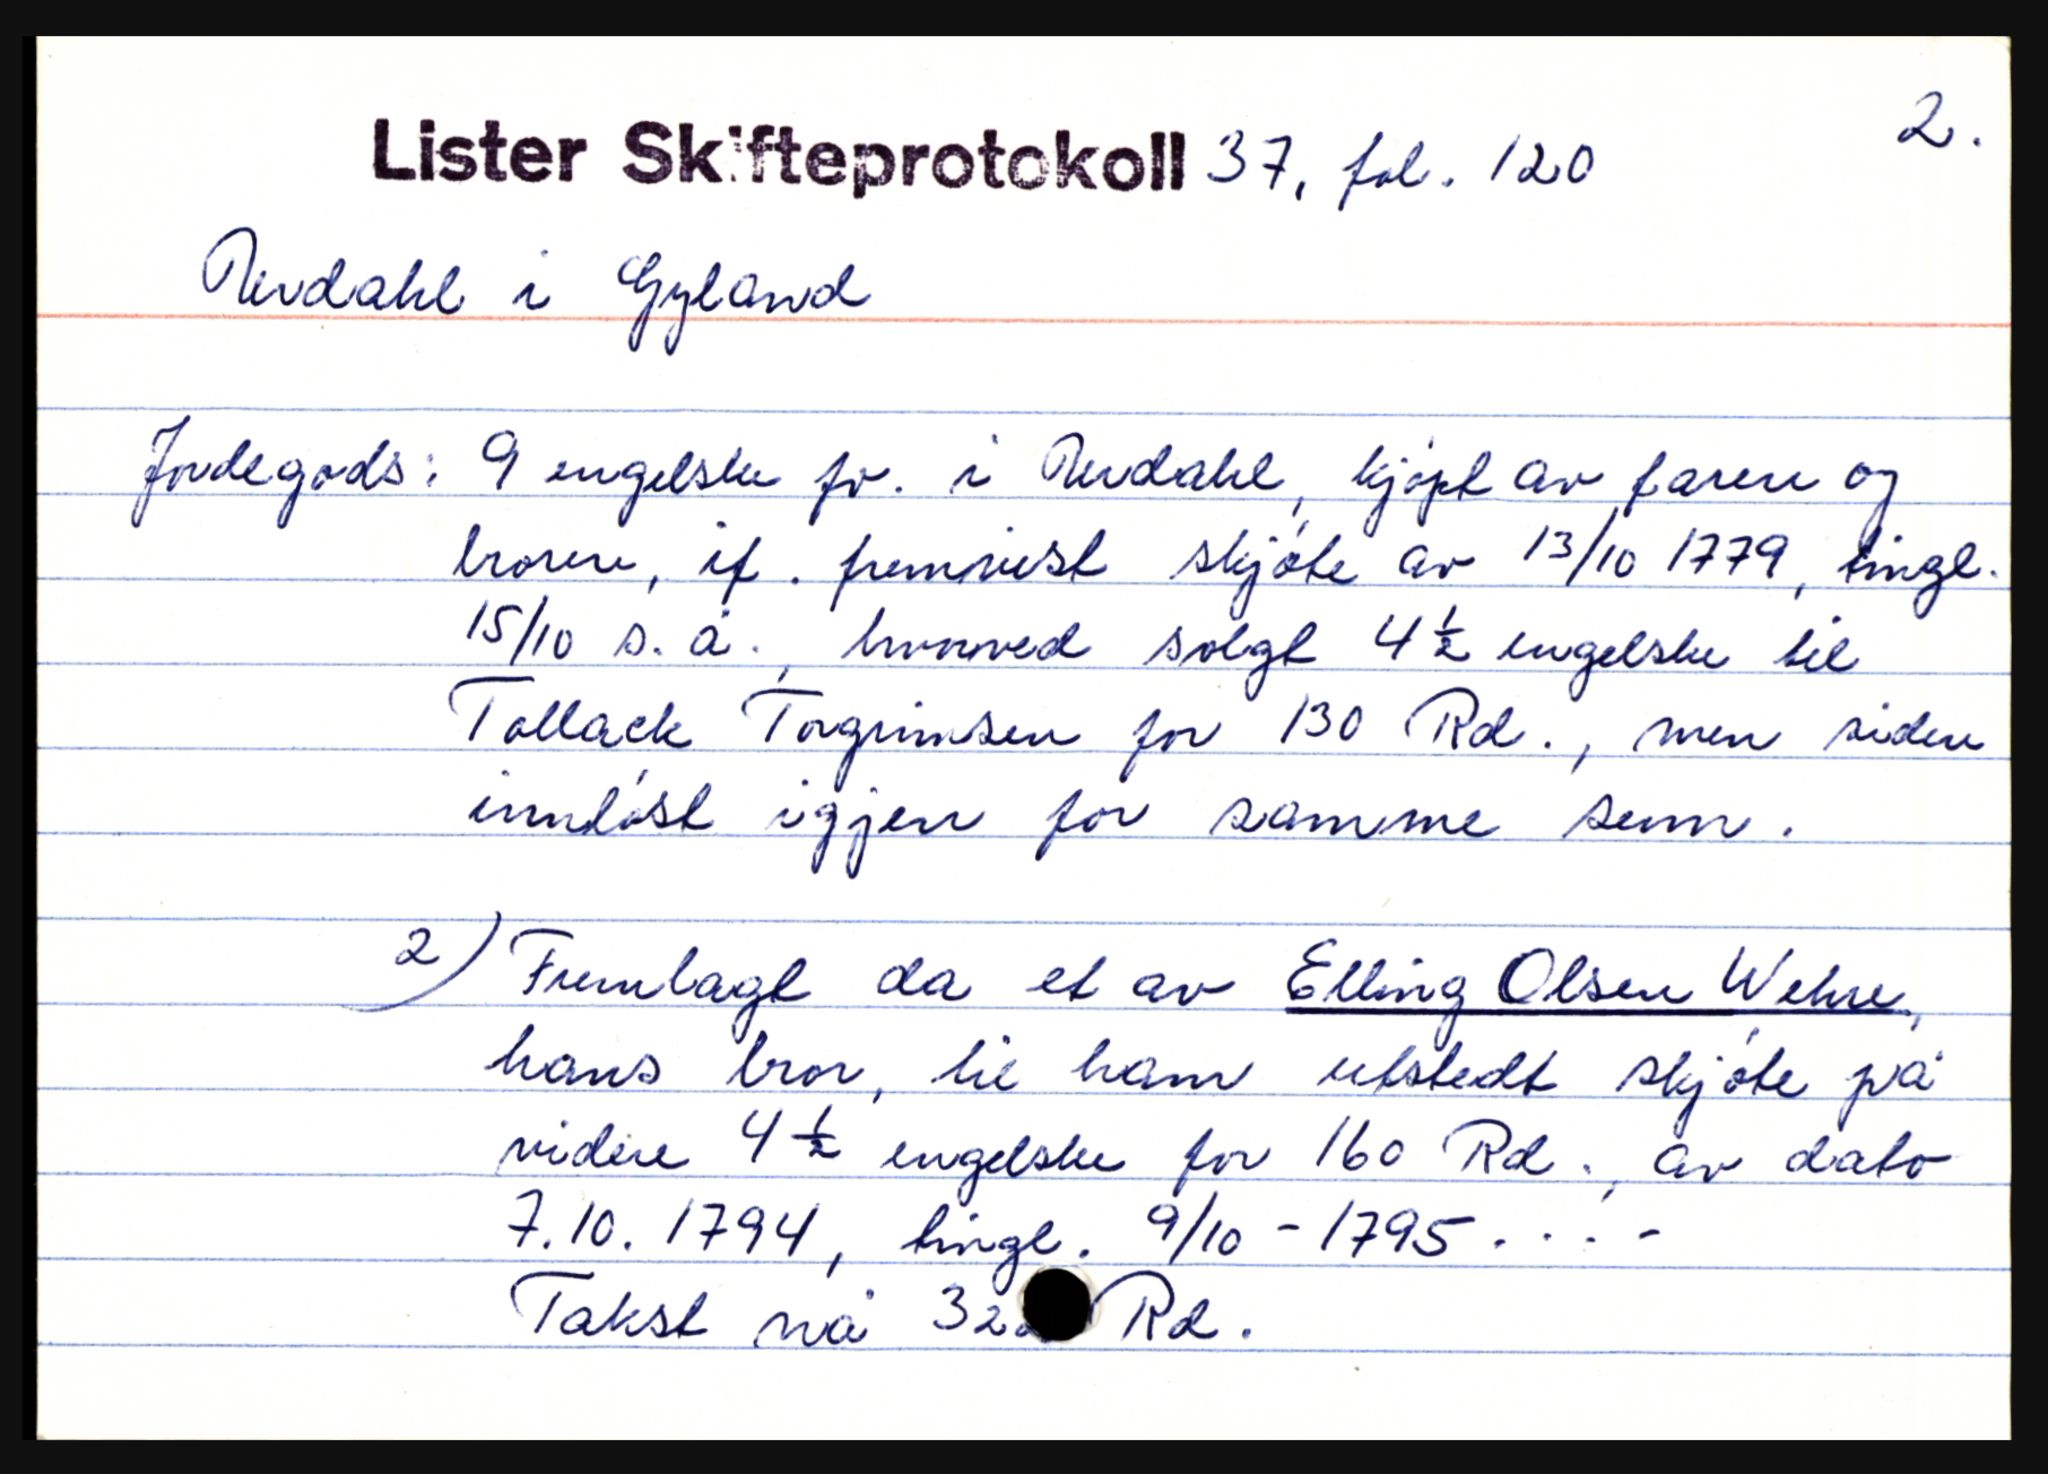 2.
Lister Skifteprotokoll 37, fol. 120
Nerdahl i Gyland
Jordegods: 9 engelske fr. i Nerdahl, kjøpt av faren og
broren, if. fremvist skjøte av 13/10 1779, tingl.
15/10 s. å., hvorved solgt 4 1/2 engelske til
Tollack Torgrimsen for 130 Rd., men siden
innløst igjen for samme sum.
2) Fremlagt da et av Elling Olsen Wehre,
hans bror, til ham utstedt skjøte på
videre 4 1/2 engelske for 160 Rd., av dato
7.10. 1794, tingl. 9/10 - 1795 . . . . -
Takst nå Rd.